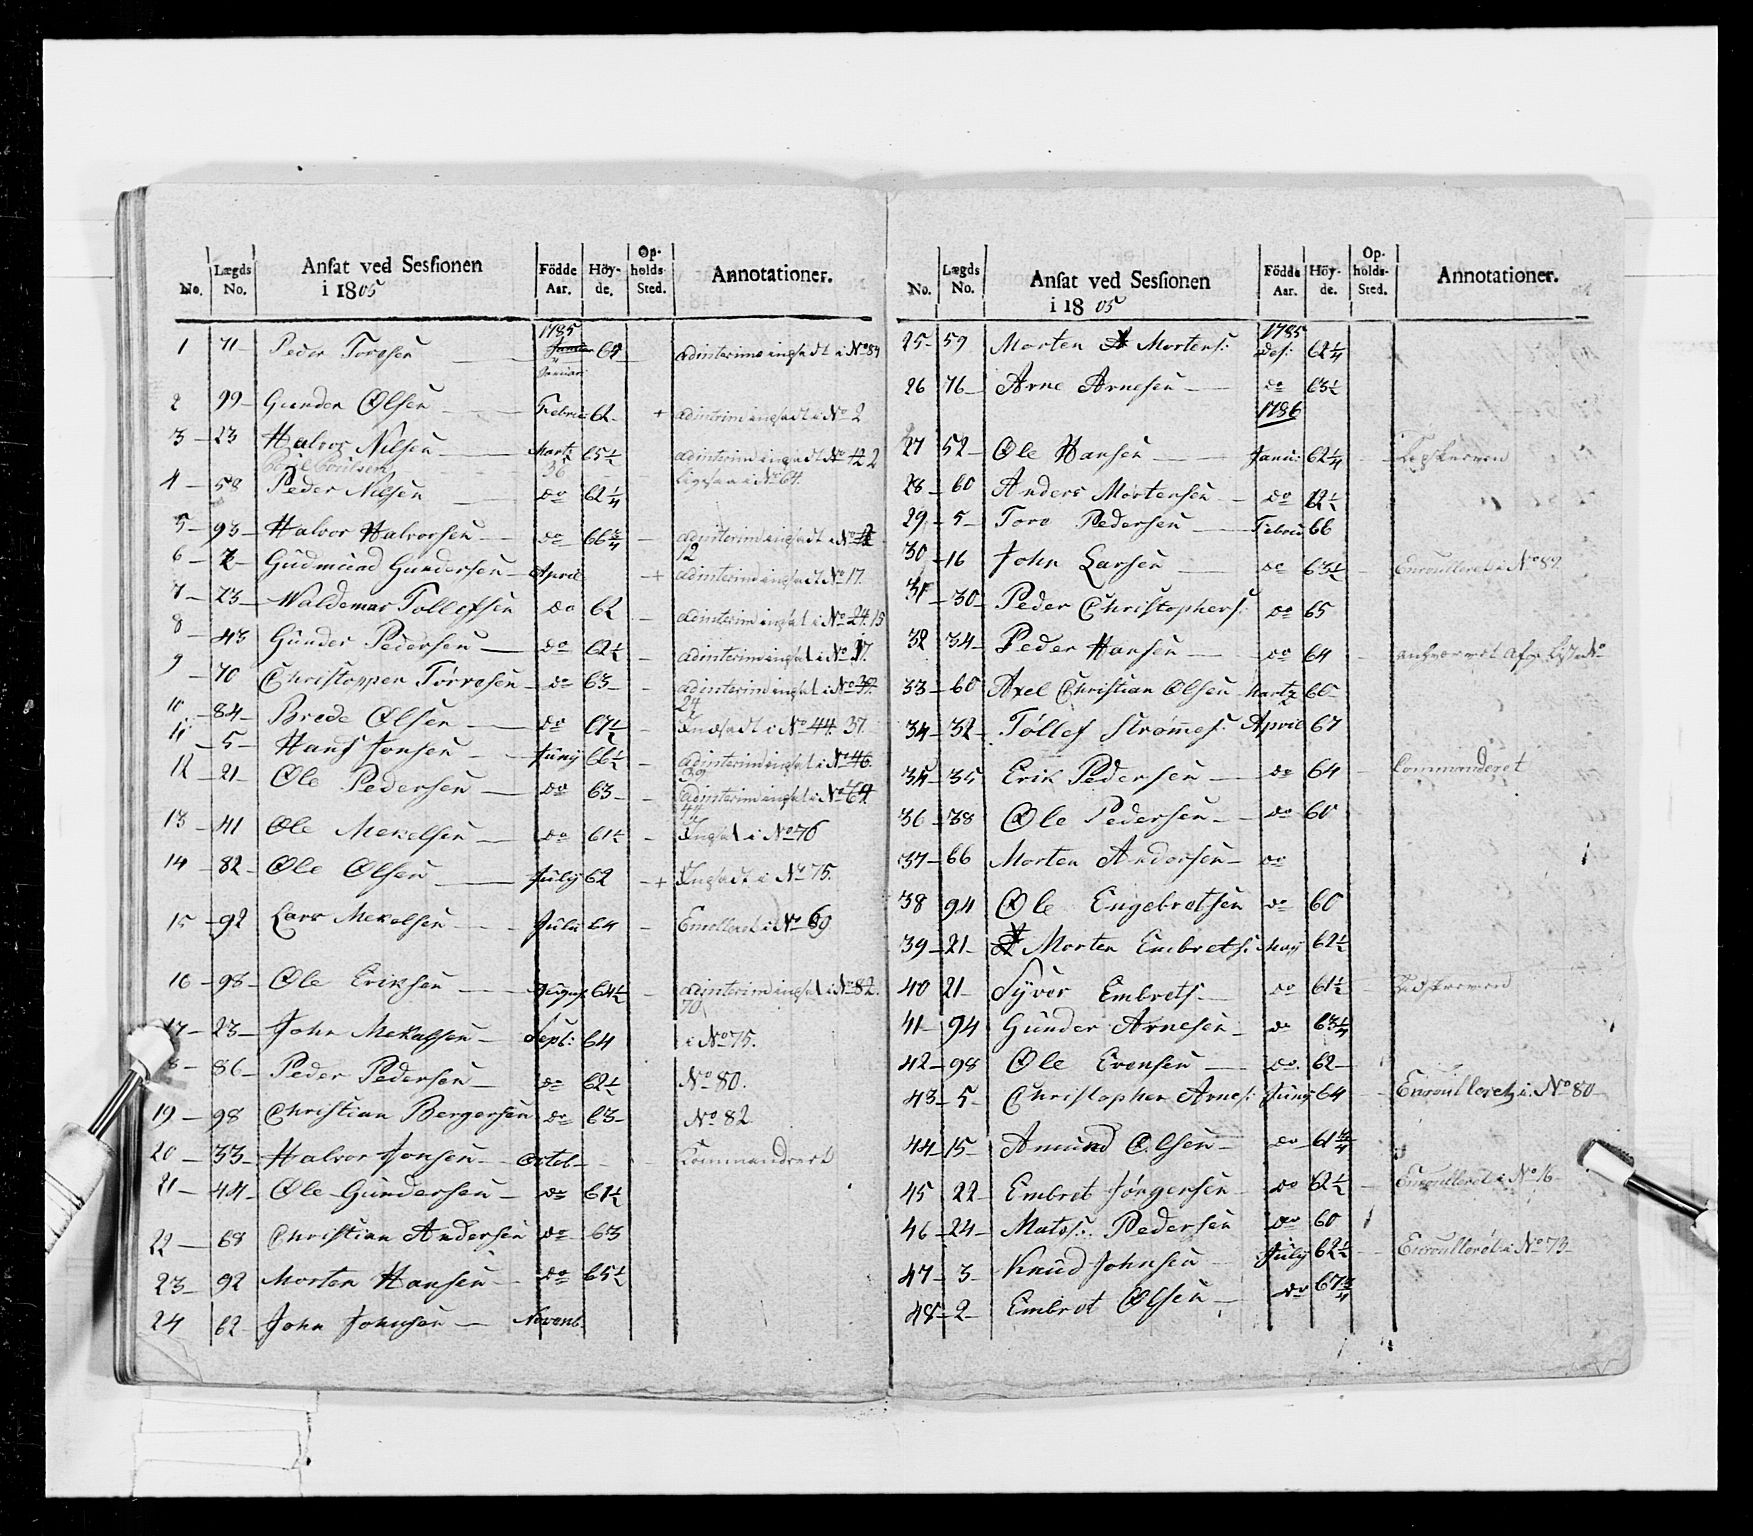 No. Lægds No. Ansat ved Sessionen i 1805 Födde Aar. Höy-de. Op-holds-Sted. Annotationer.
1785
1 71 Peder Torosen Januari 62 adinterims ingsadt i No 84
2 99 Gunder Olsen Febru: 62 + adinterim ingsadt i No 2
3 23 Halvor Nilsen Marti 65½ adinterim ingsadt No 12 2
4 58 Peder Nilsen do 62¼ No 64.
5 93 Halvor Halvorsen do 66¾ adinterim ingsadt i No 12
6 2 Gudmund Gundersen April + adinterim ingsadt No 17.
7 23 Waldemar Tollefsen do 62 adinterim ingsat i No 24. 15
8 43 Gunder Pedersen do 62½ adinterim ingsat i No 17.
9 70 Christopher Torresen do 63 adinterim ingsat i No 24
10 84 Brede Olsen do 67½ Indsadt i No 44. 37.
11 5 Hans Jonsen Juny 66½ adinterim ingsat i No 46. 39
12 21 Ole Pedersen do 63 adinterim ingsat i No 64
13 41 Ole Mekelsen do 61½ Ingsat i No 76
14 82 Ole Olsen July 62 + Ingsadt i No 75.
15 92 Lars Mekelsen Julii 64 Enrolleret i No 69
16 98 Ole Eriksen August 64½ adinterim ingsat i No 82. 70
17 23 John Mekalsen Sept: 64 i No 75.
18 86 Peder Pedersen do 62½ No 80.
19 98 Christian Bergersen do 63 No 82
20 33 Halvor Jonsen Octob Commanderet
21 44 Ole Gundersen do 61½
22 68 Christian Andersen do 63
23 92 Morten Hansen do 65½
24 62 John Johnsen Novemb
No. Lægds No. Ansat ved Sessionen i 1805 Födde Aar. Höy-de. Op-holds-Sted. Annotationer.
1785
25 59 Morten Mortens: Des: 62¼
26 76 Arne Arnesen do 63½
1786
27 52 Ole Hansen Janu: 62¼
28 60 Anders Mortensen do 62½
29 5 Toro Pedersen Febru 66
30 16 John Larsen do 63½ Enroulleret i No 89.
31 30 Peder Christophers: do 65
32 34 Peder Hansen do 64
33 60 Axel Christian Olsen Martz 60
34 32 Tollef Strömmes: April 67
35 35 Erik Pedersen do 64 Commanderet
36 38 Ole Pedersen do 60
37 66 Morten Andersen do
38 94 Ole Engebretsen do 60
39 21 Morten Embrets: May 62½
40 21 Syver Embrets do 61½
41 94 Gunder Arnesen do 63¼
42 98 Ole Evensen do. 62
43 5 Christopher Arnes: Juny 64 Enroulleret i No 80
44 15 Amund Olsen do 61¾
45 22 Embret Jörgersen do 62½ Enroulleret i No 16
46 24 Mats: Pedersen do 60
47 3 Knud Johnsen July 62½ Enroulleret i No 73
48 2 Embret Olsen do 67¾